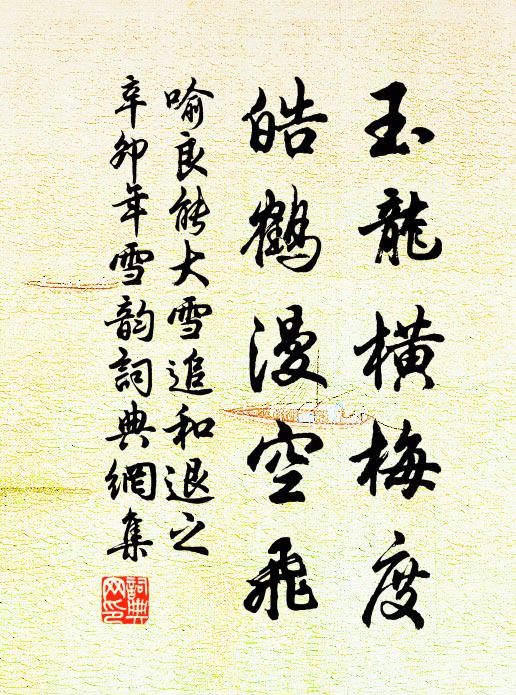 玉龍橫梅度
皓鶴漫空飛
喻良能大雪追和退之
辛卯年雪韵詞典網集
詞典網印